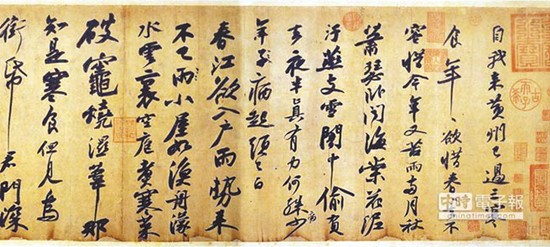 自我來黃州已過三寒
食年〻欲惜春〻去不
容惜今年又苦雨兩月秋
蕭瑟臥聞海棠花泥
汙燕支雪闇中偷負
去夜半真有力何殊病少
年子病起頭已白
春江欲入戶雨勢來
不已雨小屋如漁舟濛〻
水雲裏空庖煮寒菜
破竈燒濕葦那
知是寒食但見烏
銜帋君門深
中時電子報